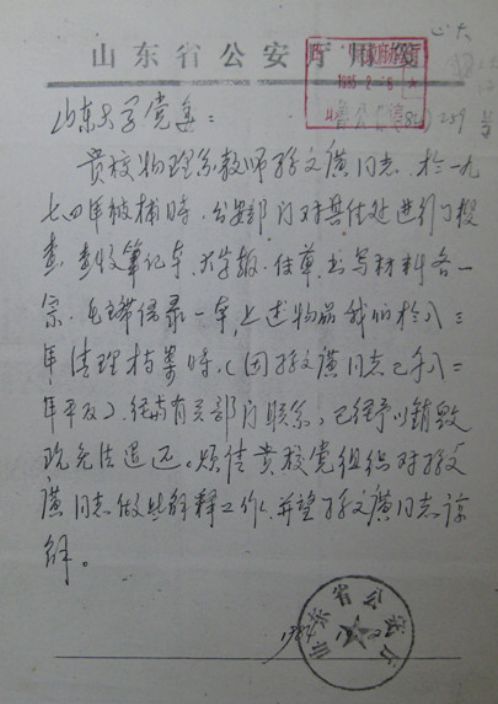 山东省公安厅
1985 2 8
259 号
山东大学党委：
贵校物理系教师孙文广同志，於一九
七四年被捕时，公安部门对其住处进行了搜
查，查收笔记本、大字报、信草、书写材料各一
宗，毛主席语录一本，上述物品我们於八三
年清理档案时，（因孙文广同志已于八二
年平反），经与有关部门联系，已经予以销毁
现无法退还。烦请贵校党组织对孙文
广同志做些解释工作，并望孙文广同志谅
解。
山东省公安厅